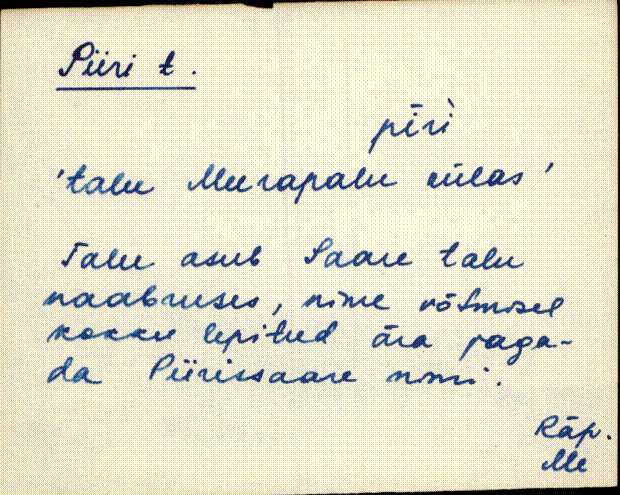 Piiri t.
pīrì̬
'talu Meerapalu külas'
Talu asub Saare talu
naabruses, nime võtmisel
kokku lepitud ära jaga-
da Piirissaare nimi.
Räp.
Me